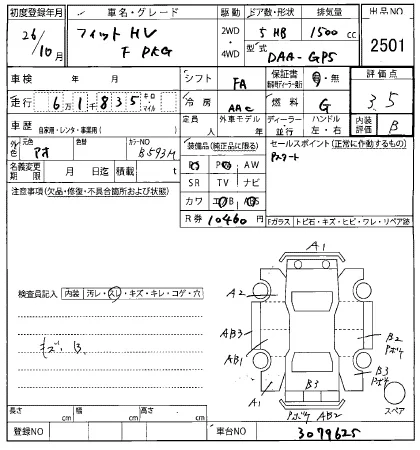 初度登録年月 車名・グレード 駆動 ドア数・形状 排気量 出品NO
26/10月 フィット HV F PKG 2WD・4WD 5 HB 1500 cc 2501
型式 DAA-GP5
車検 年 月 シフト FA 保証書 有・無 評価点
走行 6万1千835 キロ・マイル 冷房 AAC 燃料 G 3.5
車歴 自家用・レンタ・事業用( ) 定員 人 外車モデル 年 ディーラー・並行 ハンドル 左・右 内装評価 B
外色 元色 アオ 色替 カラーNO B593M
装備品(純正品に限る) セールスポイント(正常に作動するもの)
Pスタート
名義変更期限 月 日 積載 t
PS PW AW
SR TV ナビ
注意事項(欠品・修復・不具合箇所および状態)
カワ エアB ABS
R券 10460 円
Fガラス トビ石・キズ・ヒビ・ワレ・リペア跡
A1
検査員記入 内装 汚レ・スレ・キズ・キレ・コゲ・穴
A2
AB3
B2 Pボケ
キズ、B、
AB1
B3 Pボケ
A1
B3
Pボケ AB2
スペア
長さ cm 幅 cm 高さ cm
登録NO 車台NO 3079625